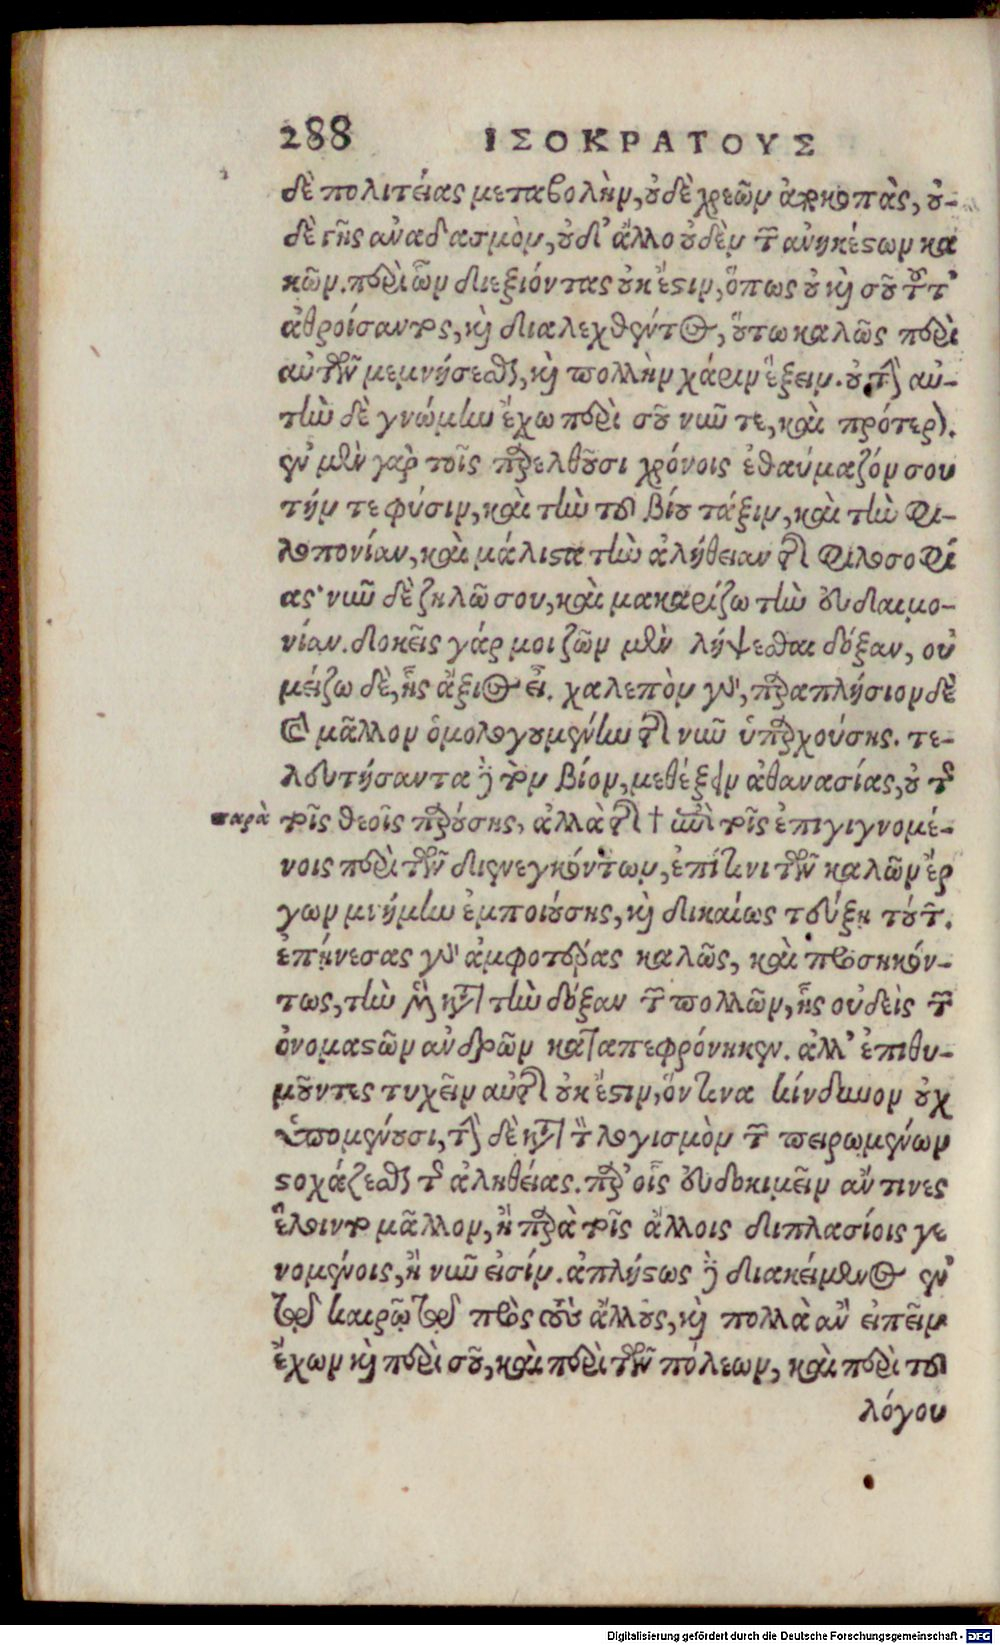 288 ΙΣΟΚΡΑΤΟΥΣ
δὲ πολιτείας μεταβολὴν, οὐδὲ χρεῶν ἀποκοπὰς, οὐ-
δὲ γῆς ἀναδασμὸν, οὐδ' ἄλλο οὐδὲν τῶν ἀνηκέστων κα
κῶν. περὶ ὧν διεξιόντας οὐκ ἔστιν, ὅπως οὐ καὶ σοῦ τοῦτ'
ἀθροίσαντος, καὶ διαλεχθέντος, οὕτω καλῶς περὶ
αὐτῶν μεμνήσεσθαι, καὶ πολλὴν χάριν ἕξειν. οὐ τὴν αὐ-
τὴν δὲ γνώμην ἔχω περὶ σοῦ νῦν τε, καὶ πρότερον.
ἐν μὲν γὰρ τοῖς παρελθοῦσι χρόνοις ἐθαύμαζόν σου
τήν τε φύσιν, καὶ τὴν τοῦ βίου τάξιν, καὶ τὴν φι-
λοπονίαν, καὶ μάλιστα τὴν ἀλήθειαν τῆς φιλοσοφί
ας· νῦν δὲ ζηλῶ σου, καὶ μακαρίζω τὴν εὐδαιμο-
νίαν. δοκεῖς γάρ μοι ζῶν μὲν λήψεσθαι δόξαν, οὐ
μείζω δὲ, ἧς ἄξιος εἶ. χαλεπὸν γὰρ, παραπλήσιον δὲ
καὶ μᾶλλον ὁμολογουμένην τῆς νῦν ὑπαρχούσης. τε-
λευτήσαντα δὲ τὸν βίον, μεθέξειν ἀθανασίας, οὐ τῆς
παρὰ τοῖς θεοῖς παρούσης, ἀλλὰ τῆς † περὶ τοῖς ἐπιγιγνομέ-
νοις περὶ τῶν διενεγκόντων, ἐπί τινι τῶν καλῶν ἔρ
γων μνήμην ἐμποιούσης, καὶ δικαίως τεύξῃ τούτων.
ἐπῄνεσας γὰρ ἀμφοτέρας καλῶς, καὶ προσηκόν-
τως, τὴν μὲν κατὰ τὴν δόξαν τῶν πολλῶν, ἧς οὐδεὶς τῶν
ὀνομαστῶν ἀνδρῶν καταπεφρόνηκεν. ἀλλ' ἐπιθυ-
μοῦντες τυχεῖν αὐτῆς οὐκ ἔστιν, ὅντινα κίνδυνον οὐχ
ὑπομένουσι, τὴν δὲ κατὰ τὸν λογισμὸν τῶν πειρωμένων
στοχάζεσθαι τῆς ἀληθείας. παρ' οἷς εὐδοκιμεῖν ἄν τινες
ἕλοιντο μᾶλλον, ἢ παρὰ τοῖς ἄλλοις διπλασίοις γε
νομένοις, ἢ νῦν εἰσίν. ἀπλήστως δὲ διακείμενος ἐν
τῷ καιρῷ τῷ πρὸς τοὺς ἄλλους, καὶ πολλὰ ἂν εἰπεῖν
ἔχων καὶ περὶ σοῦ, καὶ περὶ τῶν πόλεων, καὶ περὶ τοῦ
λόγου
Digitalisierung gefördert durch die Deutsche Forschungsgemeinschaft - DFG